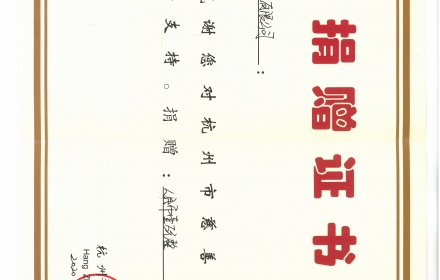 捐赠证书
有限公司：
谢您对杭州市慈善
支持。捐赠：人民币壹
杭州
Hang
2020